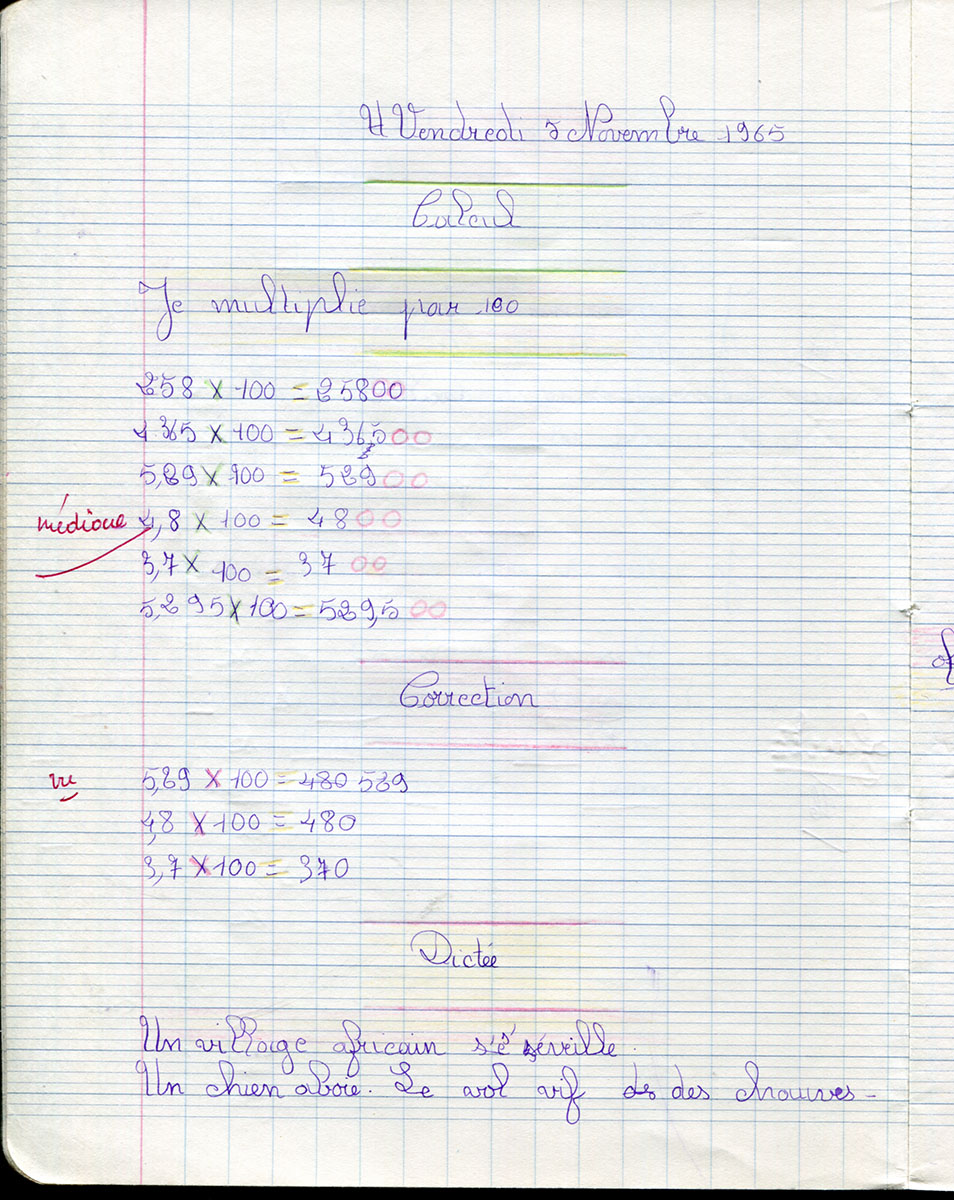 Vendredi 5 Novembre 1965
Calcul
Je multiplie par 100
258 x 100 = 25800
4.365 x 100 = 436,500
5,89 x 100 = 58900
médiocre 4,8 x 100 = 4800
3,7 x 100 = 3700
5,895 x 100 = 589,500
Correction
vu 5,89 x 100 = 480 589
4,8 x 100 = 480
3,7 x 100 = 370
Dictée
Un village africain s'é réveille.
Un chien aboie. Le vol vif de des chauves-